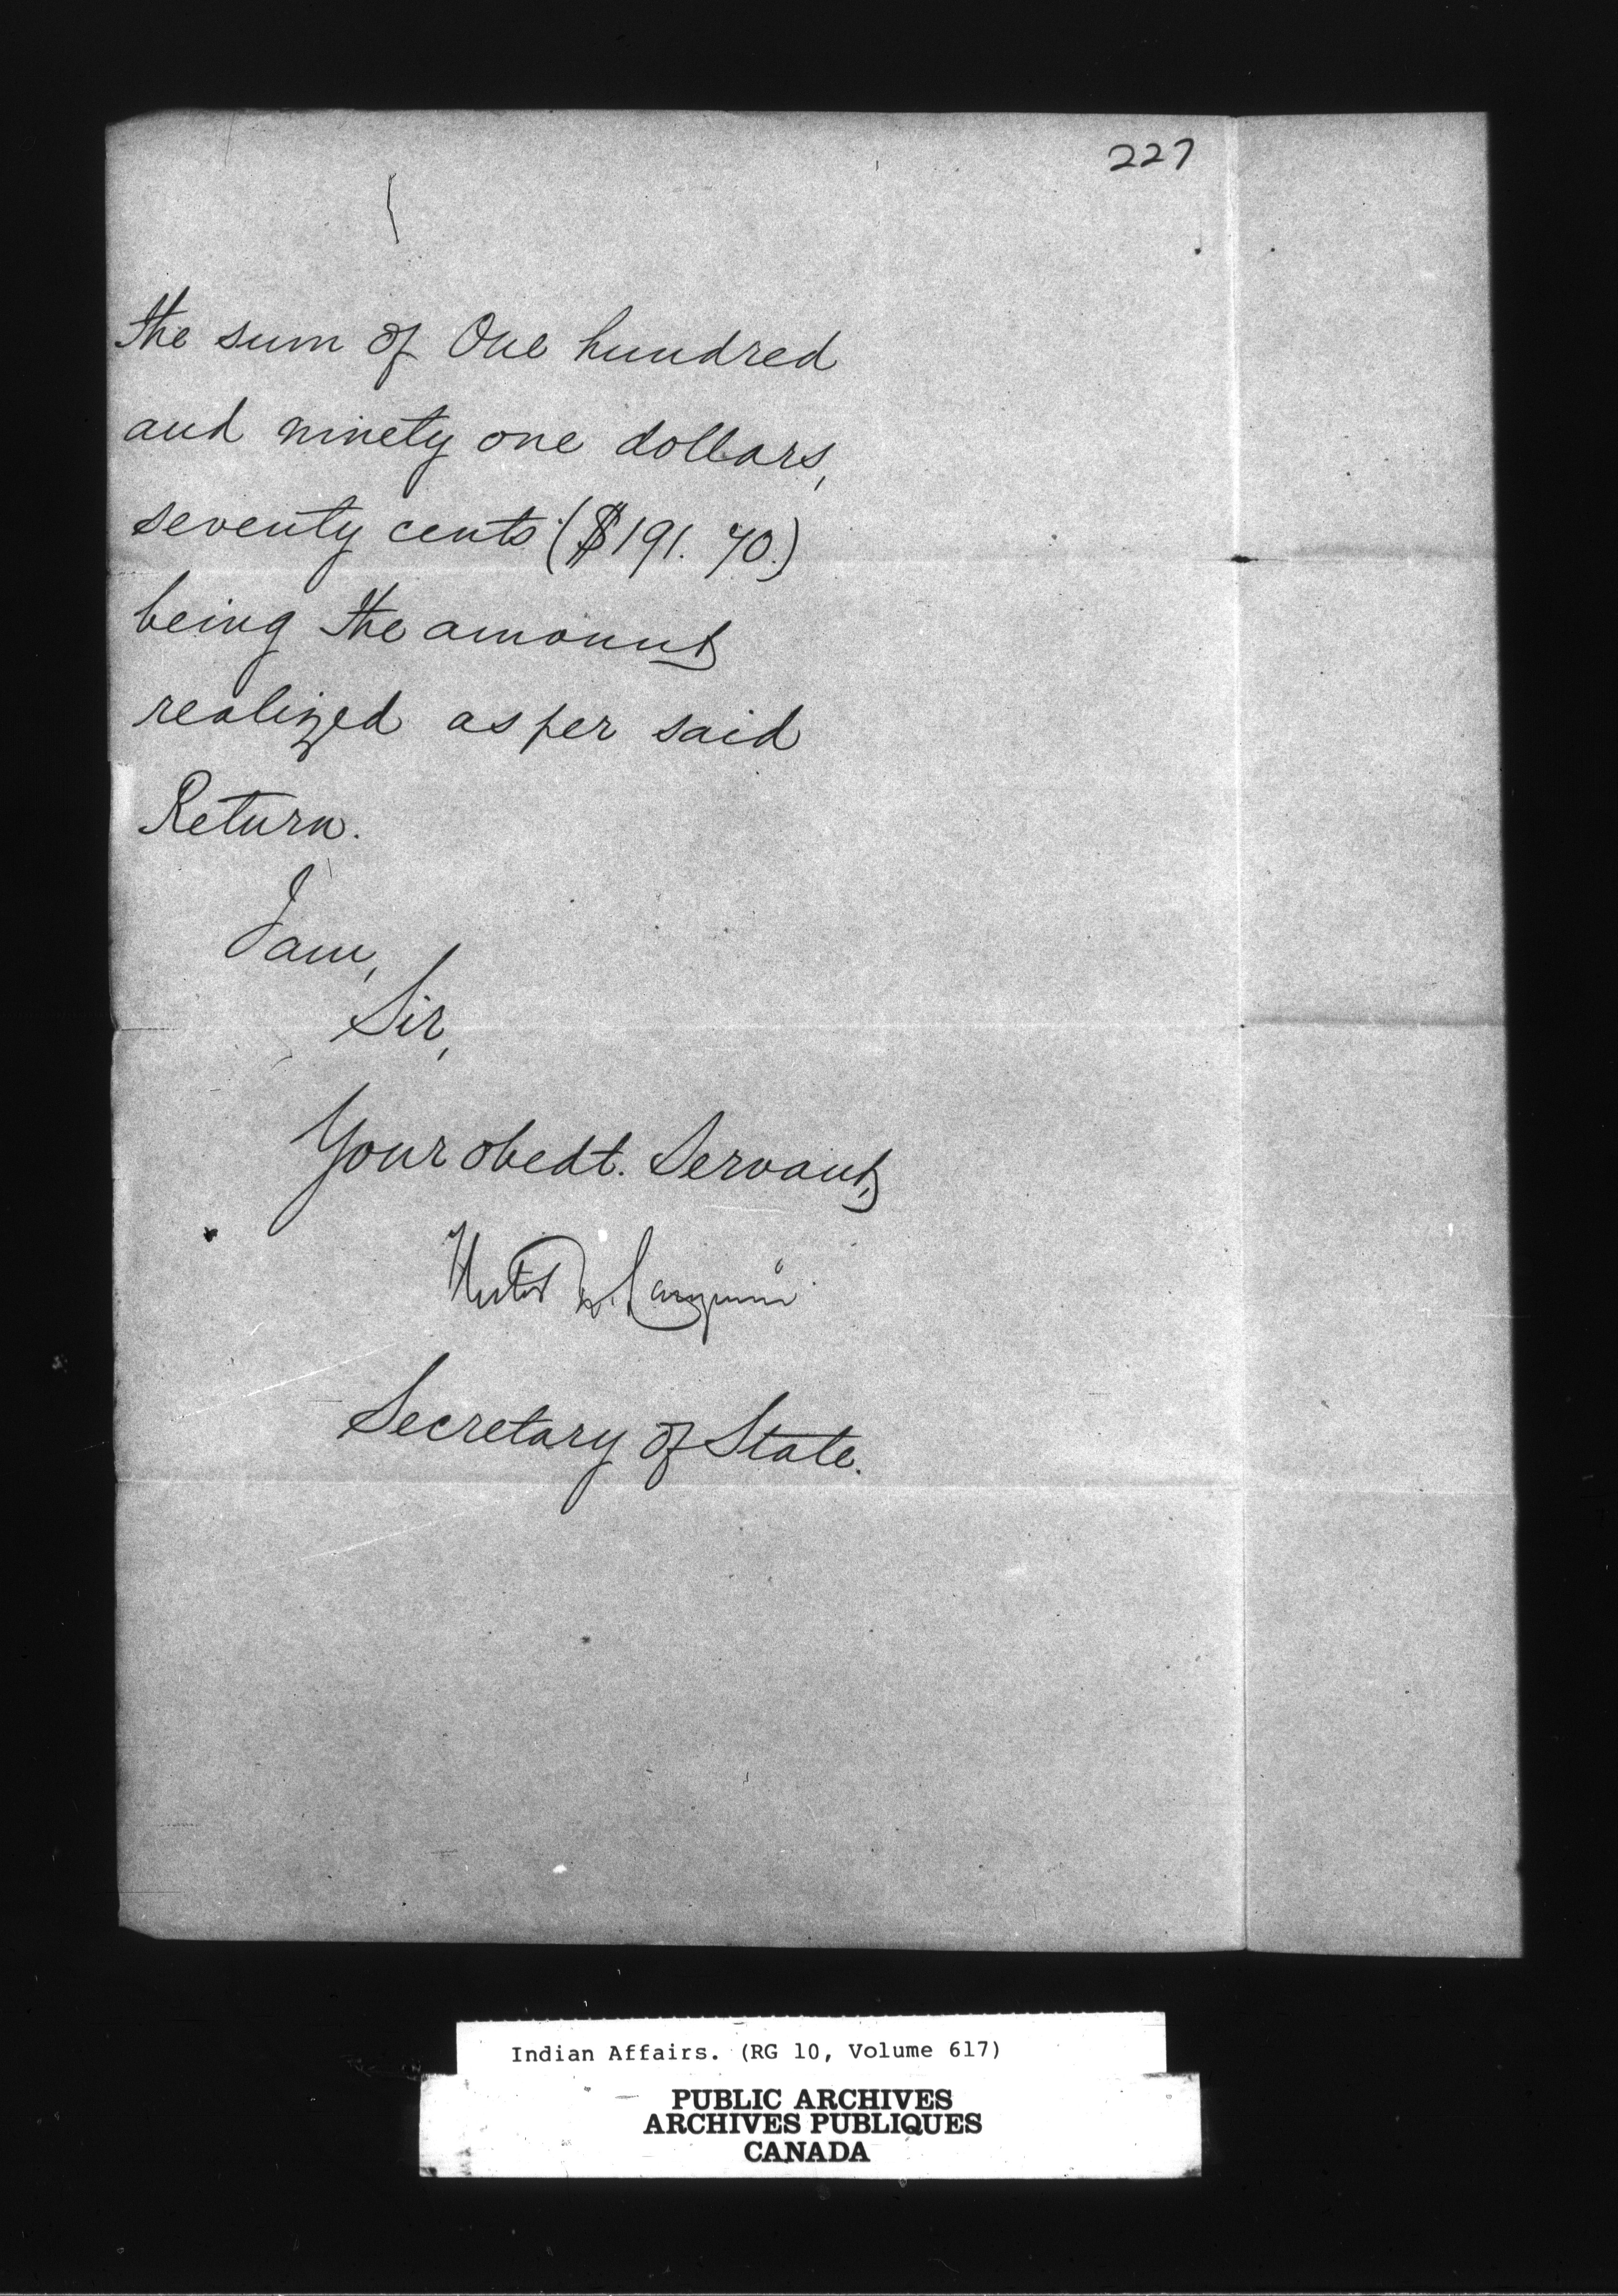 227
the sum of One hundred
and ninety one dollars,
seventy cents ($191.70.)
being the amount
realized as per said
Return.
I am,
Sir,
Your obedt. Servant,
Hector L. Langevin
Secretary of State.
Indian Affairs. (RG 10, Volume 617)
PUBLIC ARCHIVES
ARCHIVES PUBLIQUES
CANADA